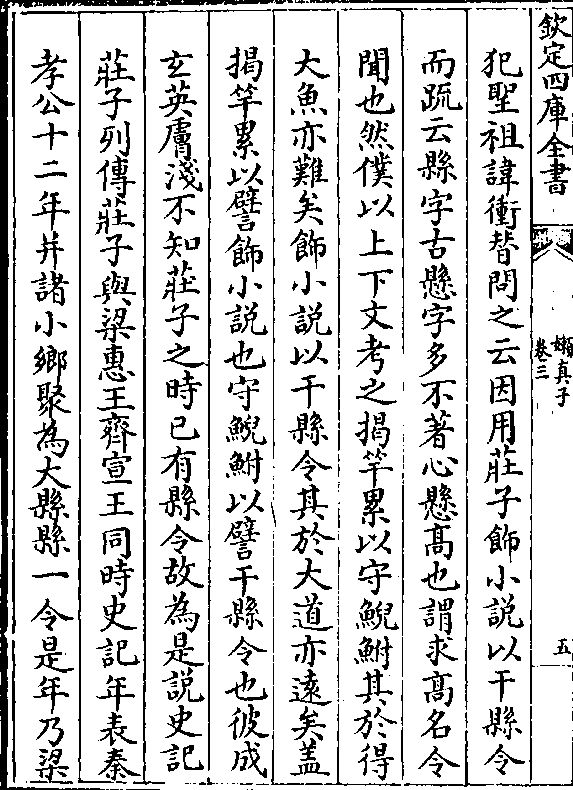 欽定四庫全書
嬾真子
卷三
五
犯聖祖諱衝替問之云因用莊子飾小説以干縣令
而疏云縣字古懸字多不著心懸髙也謂求髙名令
聞也然僕以上下文考之揭竿累以守鯢鮒其於得
大魚亦難矣飾小説以干縣令其於大道亦遠矣蓋
揭竿累以譬飾小説也守鯢鮒以譬干縣令也彼成
𤣥英膚淺不知莊子之時已有縣令故為是説史記
莊子列傳莊子與梁惠王齊宣王同時史記年表秦
孝公十二年并諸小鄉聚為大縣縣一令是年乃梁